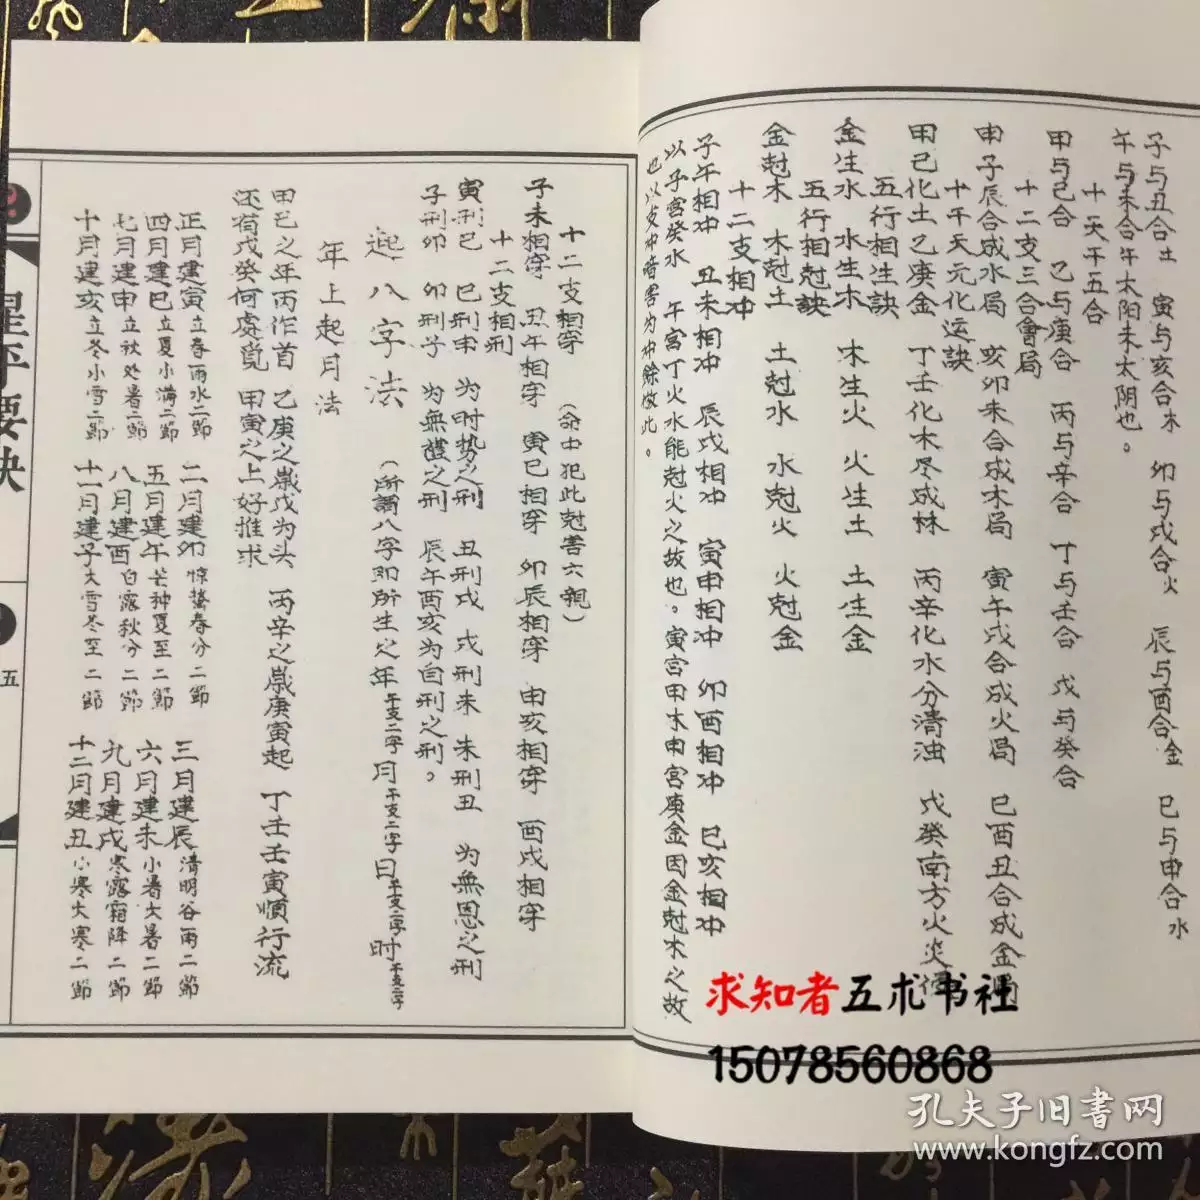 子与丑合土　寅与亥合木　卯与戌合火　辰与酉合金　巳与申合水
午与未合午太阳未太阴也。
十天干五合
甲与己合　乙与庚合　丙与辛合　丁与壬合　戊与癸合
十二支三合會局
申子辰合成水局　亥卯未合成木局　寅午戌合成火局　巳酉丑合成金局
十干天元化运訣
甲己化土乙庚金　丁壬化木尽成林　丙辛化水分清浊　戊癸南方火炎
五行相生訣
金生水　水生木　木生火　火生土　土生金
五行相尅訣
金尅木　木尅土　土尅水　水尅火　火尅金
十二支相冲
子午相冲　丑未相冲　辰戌相冲　寅申相冲　卯酉相冲　巳亥相冲
以子宫癸水　午宫丁火水能尅火之故也。寅宫甲木申宫庚金因金尅木之故
也以支冲暗害为冲餘倣此。
十二支相穿　（命中犯此尅害六親）
子未相穿　丑午相穿　寅巳相穿　卯辰相穿　申亥相穿　酉戌相穿
十二支相刑
寅刑巳　巳刑申　为时势之刑　丑刑戌　戌刑未　未刑丑　为無恩之刑
子刑卯　卯刑子　为無禮之刑　辰午酉亥为自刑之刑。
起八字法　（所謂八字即所生之年干支二字月干支二字日干支二字时干支二字
年上起月法
甲己之年丙作首　乙庚之歲戊为头　丙辛之歲庚寅起　丁壬壬寅順行流
还有戊癸何處覓　甲寅之上好推求
正月建寅立春雨水二節　二月建卯惊蟄春分二節　三月建辰清明谷雨二節
四月建巳立夏小满二節　五月建午芒种夏至二節　六月建未小暑大暑二節
七月建申立秋处暑二節　八月建酉白露秋分二節　九月建戌寒露霜降二節
十月建亥立冬小雪二節　十一月建子大雪冬至二節　十二月建丑小寒大寒二節
星平要訣
五
求知者五术书社
15078560868
孔夫子旧書网
www.kongfz.com